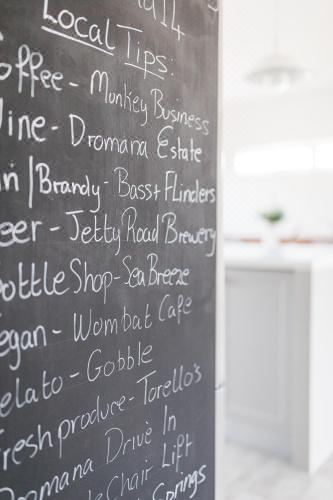 Local Tips:
offee - Monkey Business
ine - Dromana Estate
in | Brandy - Bass + Flinders
eer - Jetty Road Brewery
ottle Shop - Sea Breeze
egan - Wombat Cafe
elato - Gobble
resh produce - Torello's
Dromana Drive In
Chair Lift
Springs